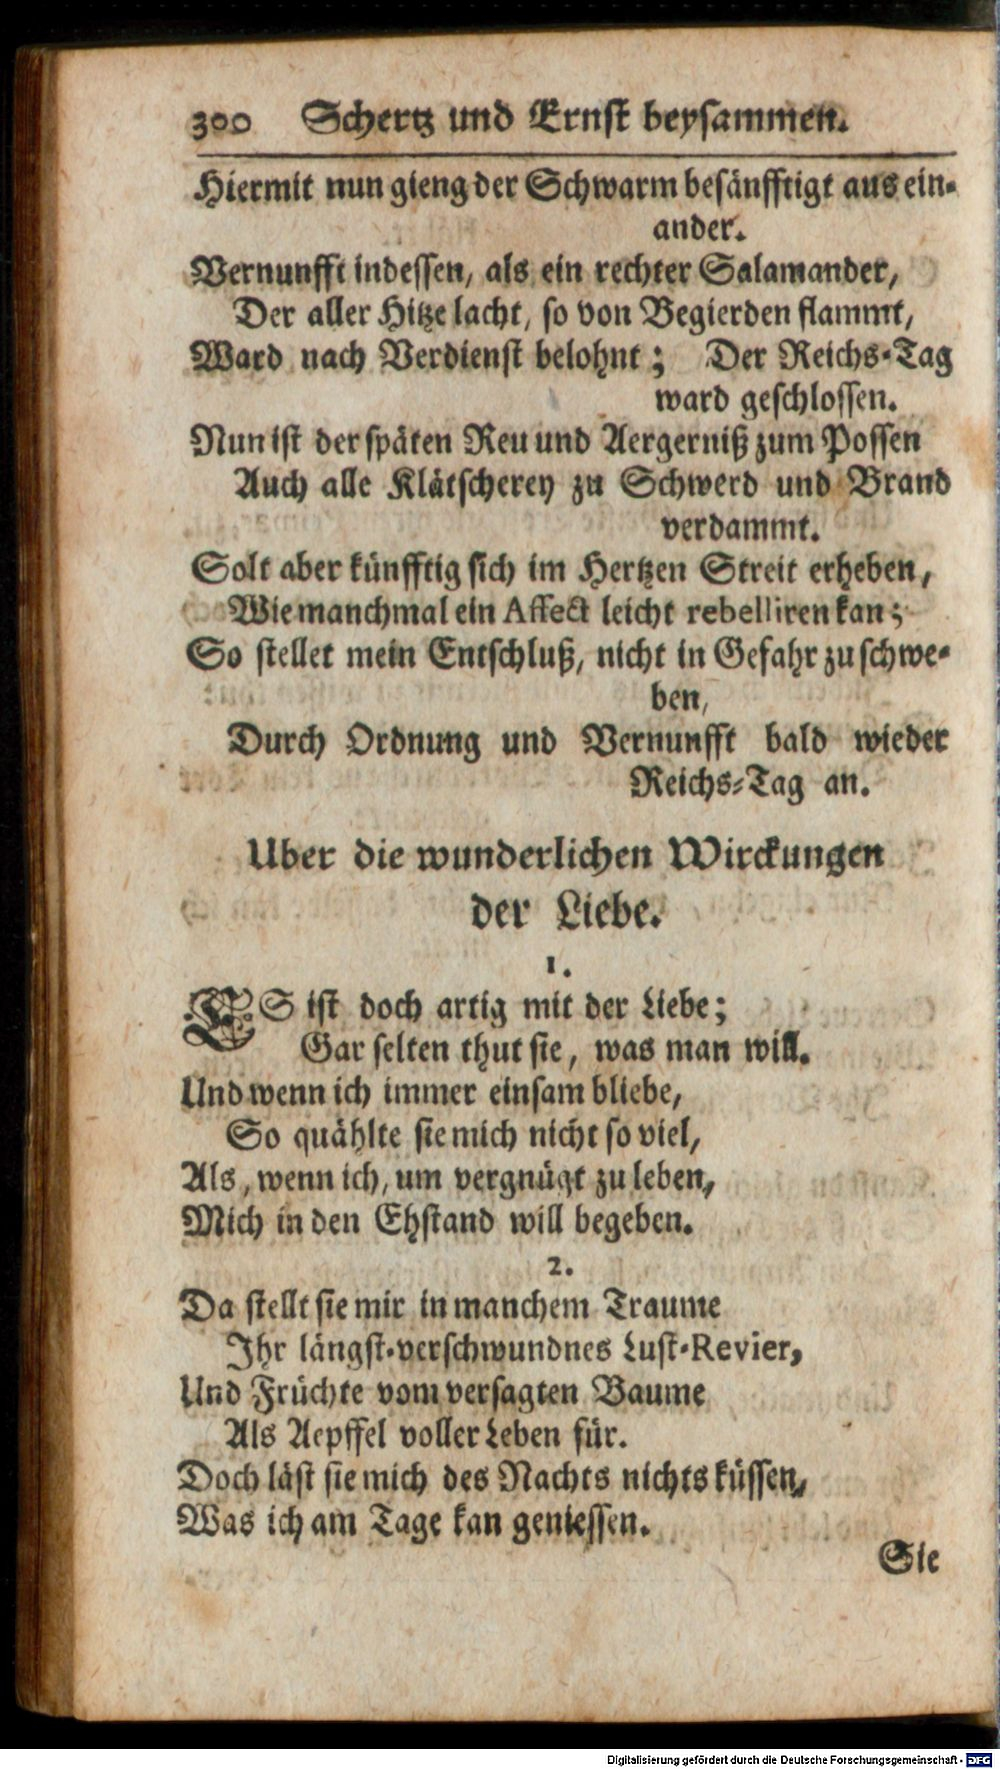 300 Schertz und Ernst beysammen.
Hiermit nun gieng der Schwarm besänfftigt aus ein-
ander.
Vernunfft indessen, als ein rechter Salamander,
Der aller Hitze lacht, so von Begierden flammt,
Ward nach Verdienst belohnt; Der Reichs-Tag
ward geschlossen.
Nun ist der späten Reu und Aergerniß zum Possen
Auch alle Klätscherey zu Schwerd und Brand
verdammt.
Solt aber künfftig sich im Hertzen Streit erheben,
Wie manchmal ein Affect leicht rebelliren kan;
So stellet mein Entschluß, nicht in Gefahr zu schwe-
ben,
Durch Ordnung und Vernunfft bald wieder
Reichs-Tag an.
Uber die wunderlichen Wirckungen
der Liebe.
1.
ES ist doch artig mit der Liebe;
Gar selten thut sie, was man will.
Und wenn ich immer einsam bliebe,
So quählte sie mich nicht so viel,
Als, wenn ich, um vergnügt zu leben,
Mich in den Ehstand will begeben.
2.
Da stellt sie mir in manchem Traume
Ihr längst-verschwundnes Lust-Revier,
Und Früchte vom versagten Baume
Als Aepffel voller Leben für.
Doch läst sie mich des Nachts nichts küssen,
Was ich am Tage kan geniessen.
Sie
Digitalisierung gefördert durch die Deutsche Forschungsgemeinschaft - DFG